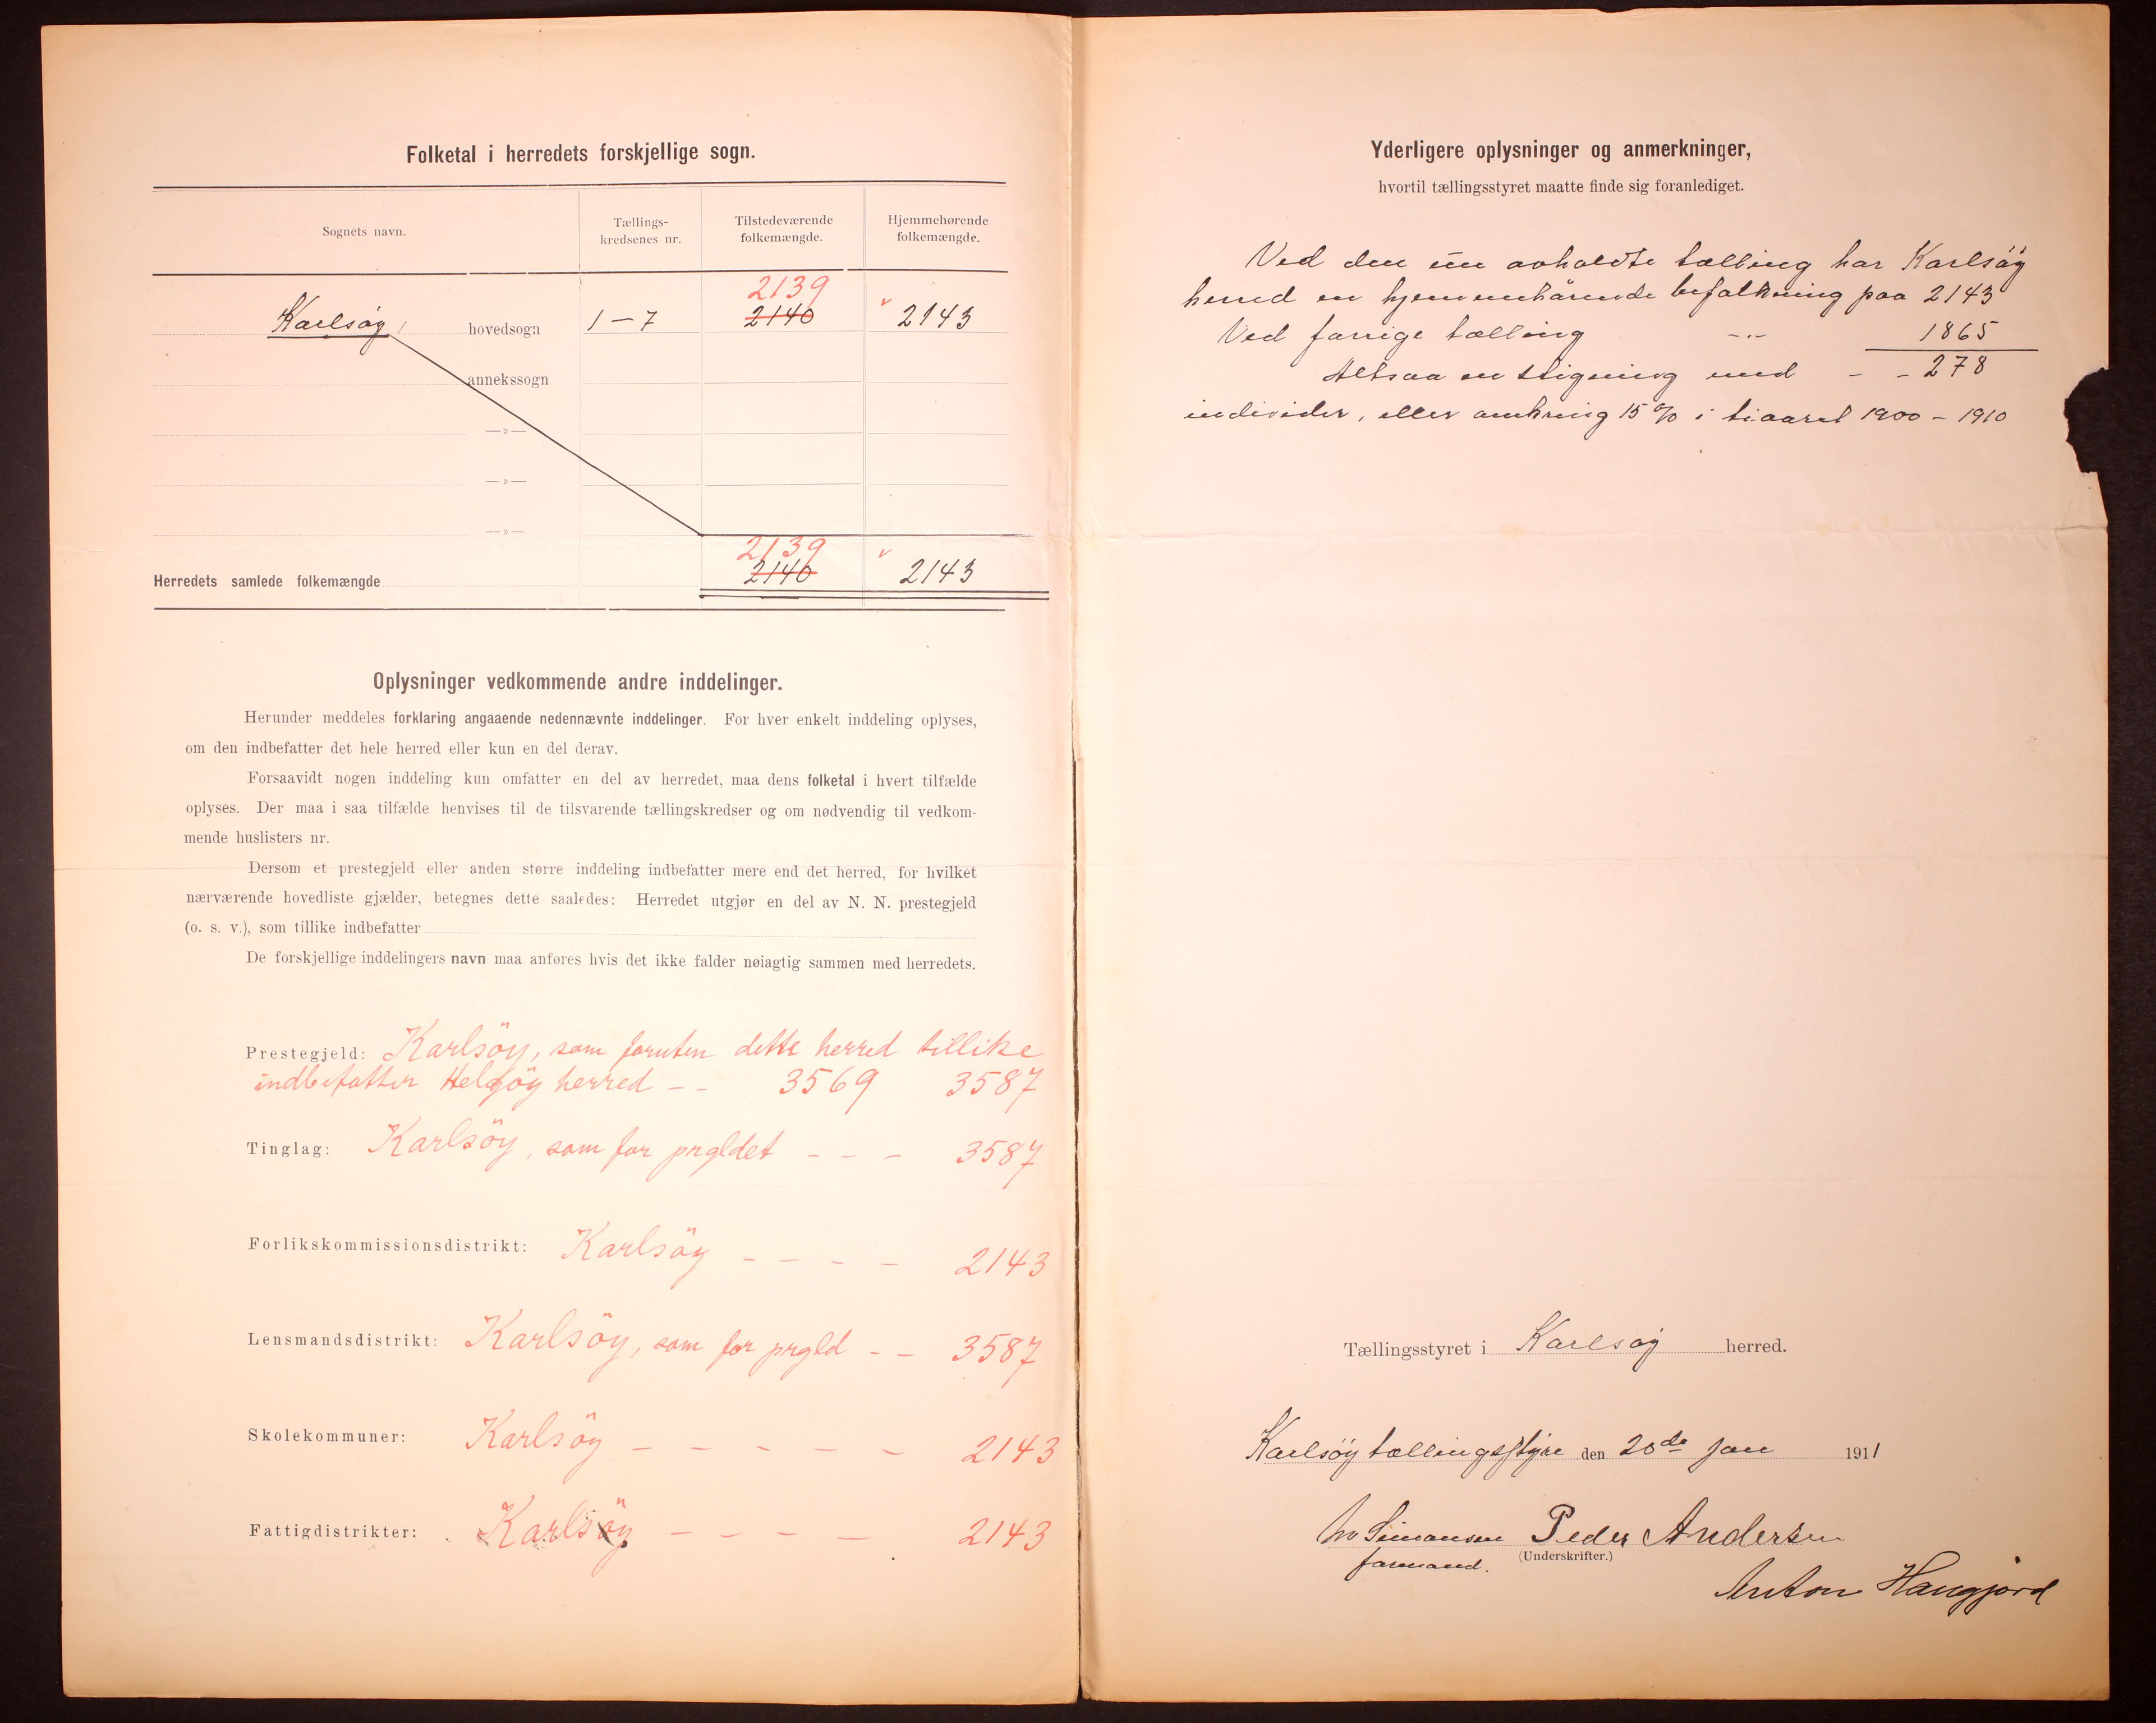 Folketal i herredets forskjellige sogn.
Sognets navn.
Tællings-
kredsenes nr.
Tilstedeværende
folkemængde.
Hjemmehørende
folkemængde.
2139
Karlsøy hovedsogn 1-7 2140 2143
annekssogn
—»—
—»—
—»—
2139
Herredets samlede folkemængde 2140 2143
Oplysninger vedkommende andre inddelinger.
Herunder meddeles forklaring angaaende nedennævnte inddelinger. For hver enkelt inddeling oplyses,
om den indbefatter det hele herred eller kun en del derav.
Forsaavidt nogen inddeling kun omfatter en del av herredet, maa dens folketal i hvert tilfælde
oplyses. Der maa i saa tilfælde henvises til de tilsvarende tællingskredser og om nødvendig til vedkom-
mende huslisters nr.
Dersom et prestegjeld eller anden større inddeling indbefatter mere end det herred, for hvilket
nærværende hovedliste gjælder, betegnes dette saaledes: Herredet utgjør en del av N. N. prestegjeld
(o. s. v.), som tillike indbefatter
De forskjellige inddelingers navn maa anføres hvis det ikke falder nøiagtig sammen med herredets.
Prestegjeld: Karlsöy, som foruten dette herred tillike
indbefatter Helgöy herred -- 3569 3587
Tinglag: Karlsöy, som for prgldet - - - 3587
Forlikskommissionsdistrikt: Karlsöy - - - - 2143
Lensmandsdistrikt: Karlsöy, som for prgld - - 3587
Skolekommuner: Karlsöy - - - - - 2143
Fattigdistrikter: Karlsöy - - - - 2143
Yderligere oplysninger og anmerkninger,
hvortil tællingsstyret maatte finde sig foranlediget.
Ved den nu avholdte tælling har Karlsöy
herred en hjemmehörende befolkning paa 2143
Ved forrige tælling -"- 1865
Altsaa en stigning med - - 278
individer, eller omkring 15 % i tiaaret 1900 - 1910
Tællingsstyret i Karlsöy herred.
Karlsöy tællingsstyre den 20de jan 1911
Simonsen Peder Andersen
formand. (Underskrifter.)
Anton Hansfjord